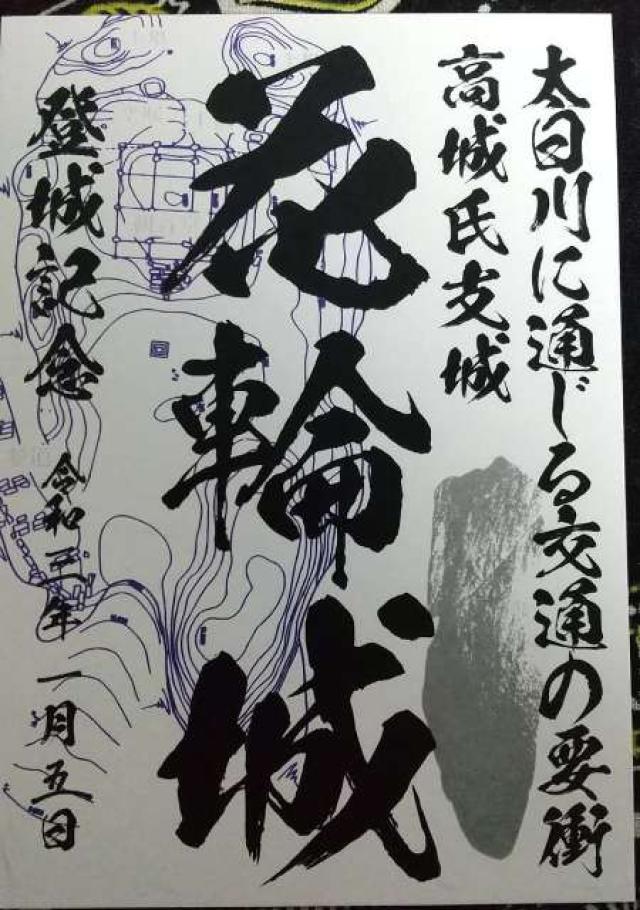 太日川に通じる交通の要衝
高城氏支城
花輪城
登城記念
令和三年一月五日